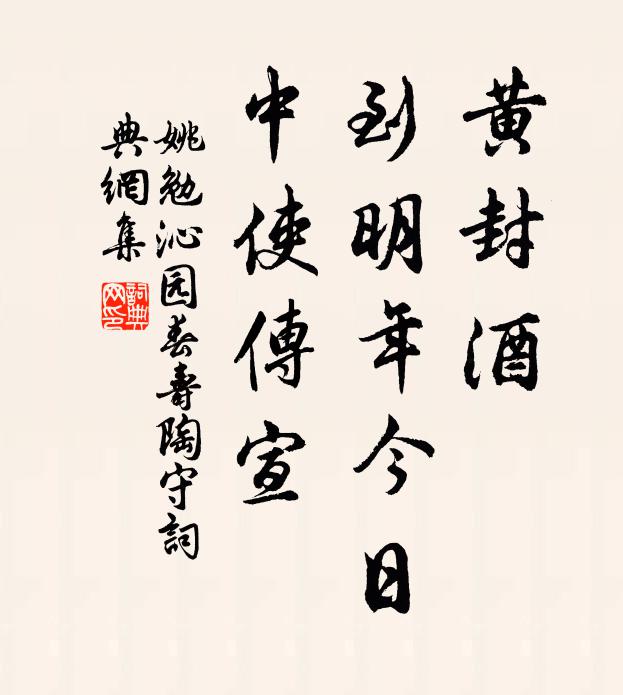 黄封酒
到明年今日
中使傳宣
姚勉沁园春壽陶守詞
典網集
詞典網印